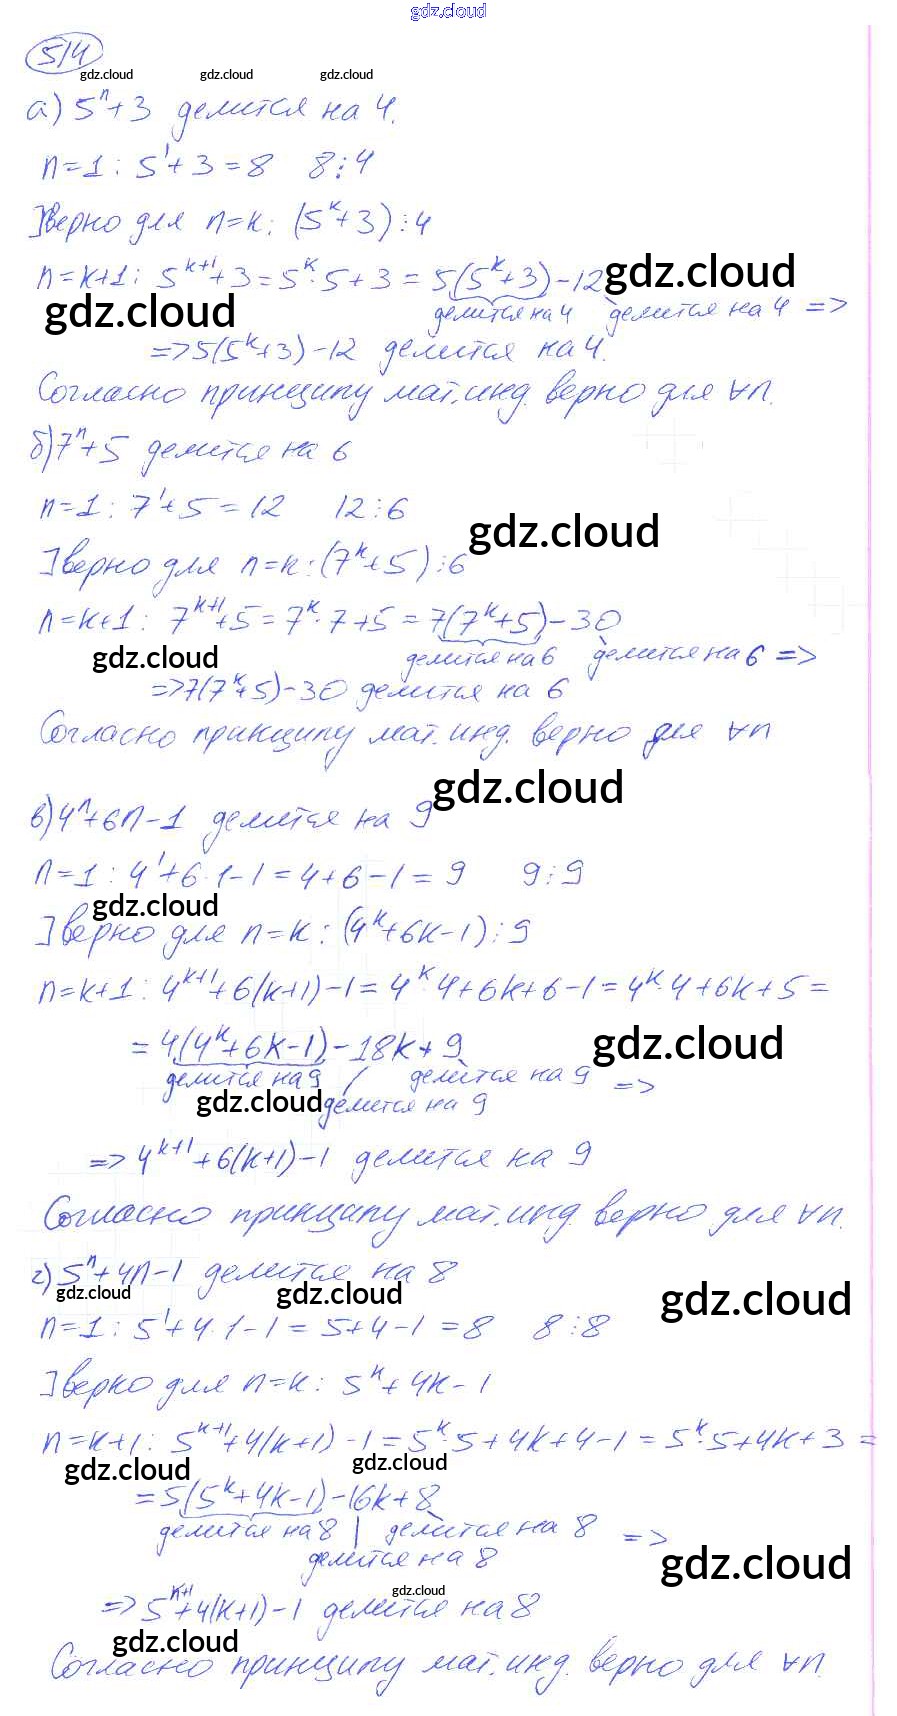 gdz.cloud
514
gdz.cloud gdz.cloud gdz.cloud
а) 5ⁿ+3 делится на 4.
n=1: 5¹+3=8 8⋮4
]верно для n=k: (5ᵏ+3)⋮4
n=k+1: 5ᵏ⁺¹+3=5ᵏ·5+3=5(5ᵏ+3)-12 gdz.cloud
gdz.cloud делится на 4 делится на 4 =>
=>5(5ᵏ+3)-12 делится на 4.
Согласно принципу мат. инд. верно для ∀n.
б) 7ⁿ+5 делится на 6
n=1: 7¹+5=12 12⋮6
gdz.cloud
]верно для n=k: (7ᵏ+5)⋮6
n=k+1: 7ᵏ⁺¹+5=7ᵏ·7+5=7(7ᵏ+5)-30
gdz.cloud делится на 6 делится на 6 =>
=>7(7ᵏ+5)-30 делится на 6
Согласно принципу мат. инд. верно для ∀n
gdz.cloud
в) 4ⁿ+6n-1 делится на 9
n=1: 4¹+6·1-1=4+6-1=9 9⋮9
gdz.cloud
]верно для n=k: (4ᵏ+6k-1)⋮9
n=k+1: 4ᵏ⁺¹+6(k+1)-1=4ᵏ·4+6k+6-1=4ᵏ·4+6k+5=
=4(4ᵏ+6k-1)-18k+9 gdz.cloud
делится на 9 делится на 9 =>
gdz.cloud делится на 9
=> 4ᵏ⁺¹+6(k+1)-1 делится на 9
Согласно принципу мат. инд. верно для ∀n.
г) 5ⁿ+4n-1 делится на 8
gdz.cloud gdz.cloud gdz.cloud
n=1: 5¹+4·1-1=5+4-1=8 8⋮8
]верно для n=k: 5ᵏ+4k-1
n=k+1: 5ᵏ⁺¹+4(k+1)-1=5ᵏ·5+4k+4-1=5ᵏ·5+4k+3=
gdz.cloud gdz.cloud
=5(5ᵏ+4k-1)-16k+8
делится на 8 делится на 8 =>
делится на 8 gdz.cloud
gdz.cloud
=> 5ᵏ⁺¹+4(k+1)-1 делится на 8
gdz.cloud
Согласно принципу мат. инд. верно для ∀n.